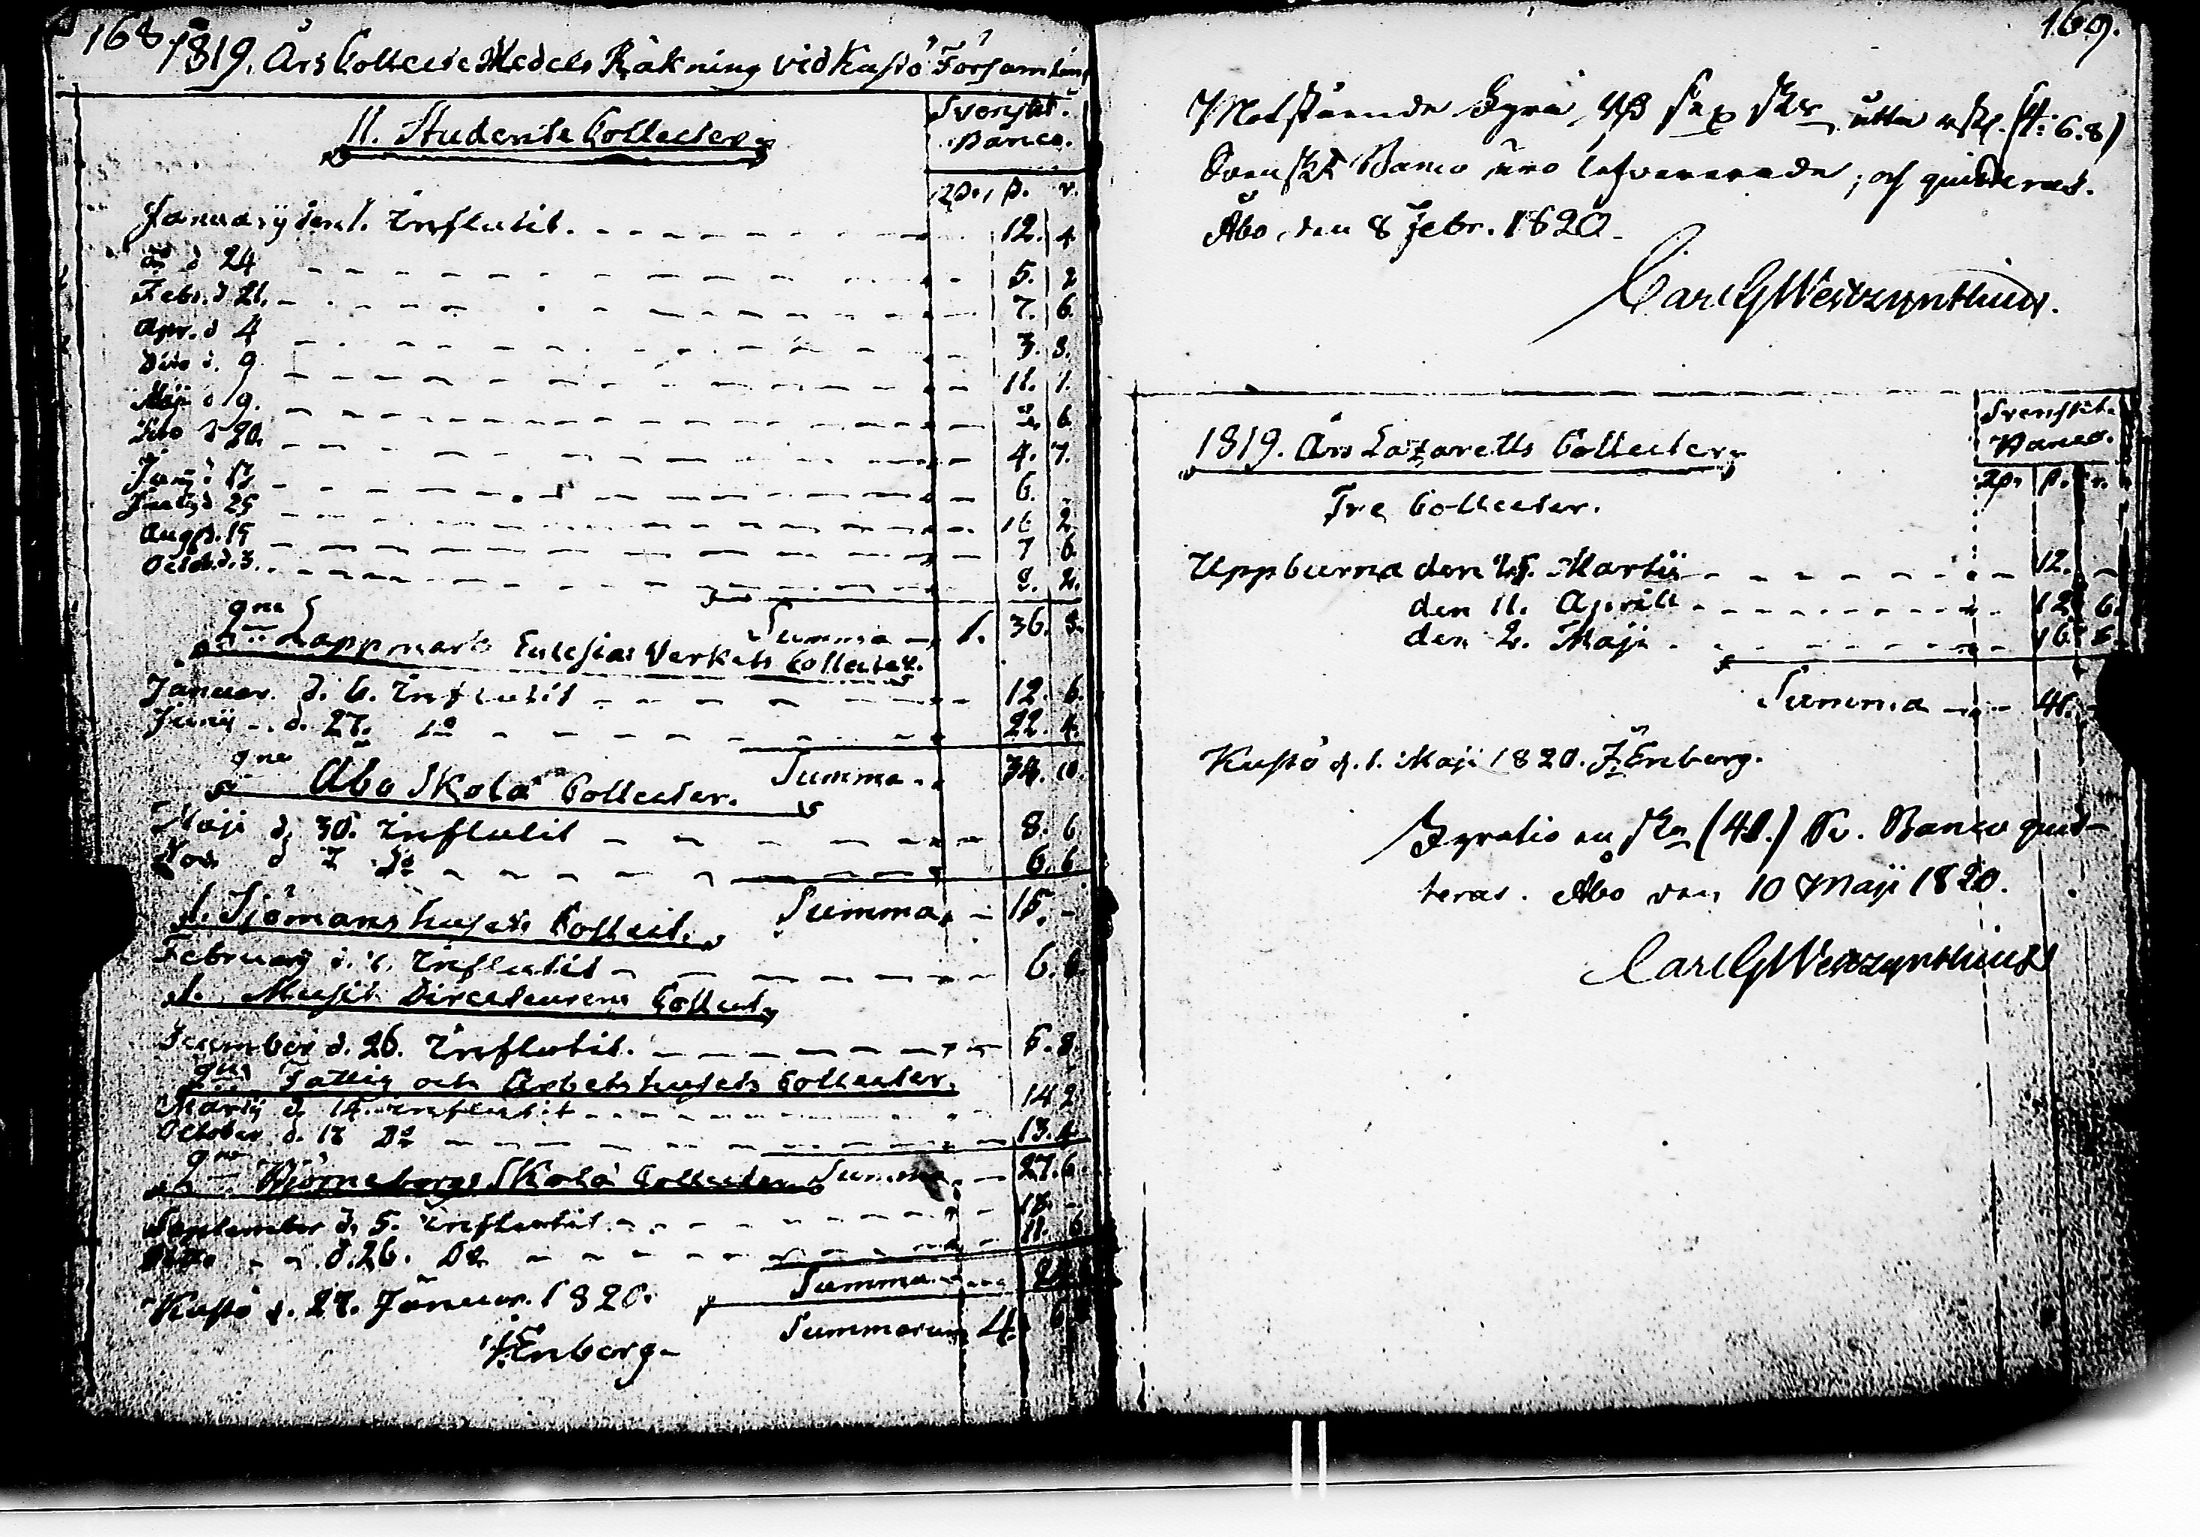 168.
1819. Års Collecte Medels Räkning vid Kustö Församling
11. Studente Collecter
Svenskt.
Banco.
Rdr. ß. r.
January den 1. Influtit. 12. 4.
d 24 5. 2
Febr. d 21. 7. 6.
Apr. d 4 3. 8.
Dito d. 9 11. 1.
Maji d 9. 6
Dito d 20. 4. 7.
Juny d 6.
July d 25 16 2
Aug. d. 15 7 6.
Octob. d. 3. 2.
Summa 1. 36. 8.
2ne Lappmarks Ecclesias Verkets Collecter.
Januar. d. 6. Influtit 12. 6.
Juny d. 27. Do 22. 4.
Summa 34. 10.
2ne Åbo Skola Collecter.
Maji d. 30. Influtit 8. 6
Nov. d 7 Do 6. 6
Summa 15. -
1. Sjömanshusets Collect.
February d. Influtit 6. 6
1. Musik Directeurens Collect
December d. 26. Influtit. 5. 8.
2ne Fattig och Arbetshusets Collecter.
Martii d. 14. Influtit 14 2
October d. 18 Do 13. 4.
Summa 27. 6
2ne Björneborgs Skola Collecter
September d. 5. Influtit.
Dito d. 26. Do 11. 6
Summa
Kustö d. 27. Januar. 1820.
Summarum 4. 6
J. Enberg
169.
Motstående Fyra, Rß sex sk. åtta rst. (4: 6. 8)
Svenskt Banco äro lefvererade, och quitteras.
Åbo den 8 Febr. 1820.
Carl G Westzynthius.
Svenskt.
Banco.
1819. Års Lazaretts Collecter
Rdr ß. r.
Tre Collecter.
Uppburna den 25. Martii 12. -
den 11. Aprill 12 6.
den 2. Maji 16. 6.
Summa 41. -
Kustö d. 1. Maji 1820. J. Enberg.
Fyratio en sk. (41.) Sv. Banco quit-
teras. Åbo den 10 Maji 1820.
Carl G Westzynthius